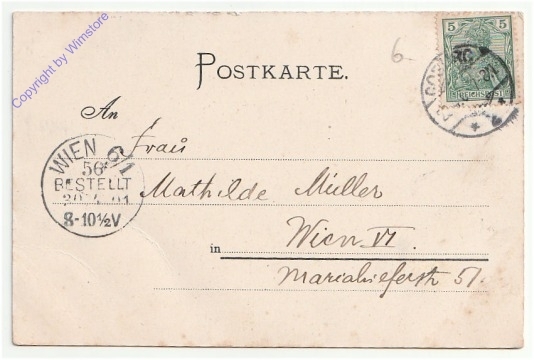 Copyright by Wimstore
6.
5
REICHSPOST
POSTKARTE.
An
Frau
Mathilde Müller
in Wien VI.
Mariahilferstr 51.
WIEN 6/1
56
BESTELLT
8-10½V